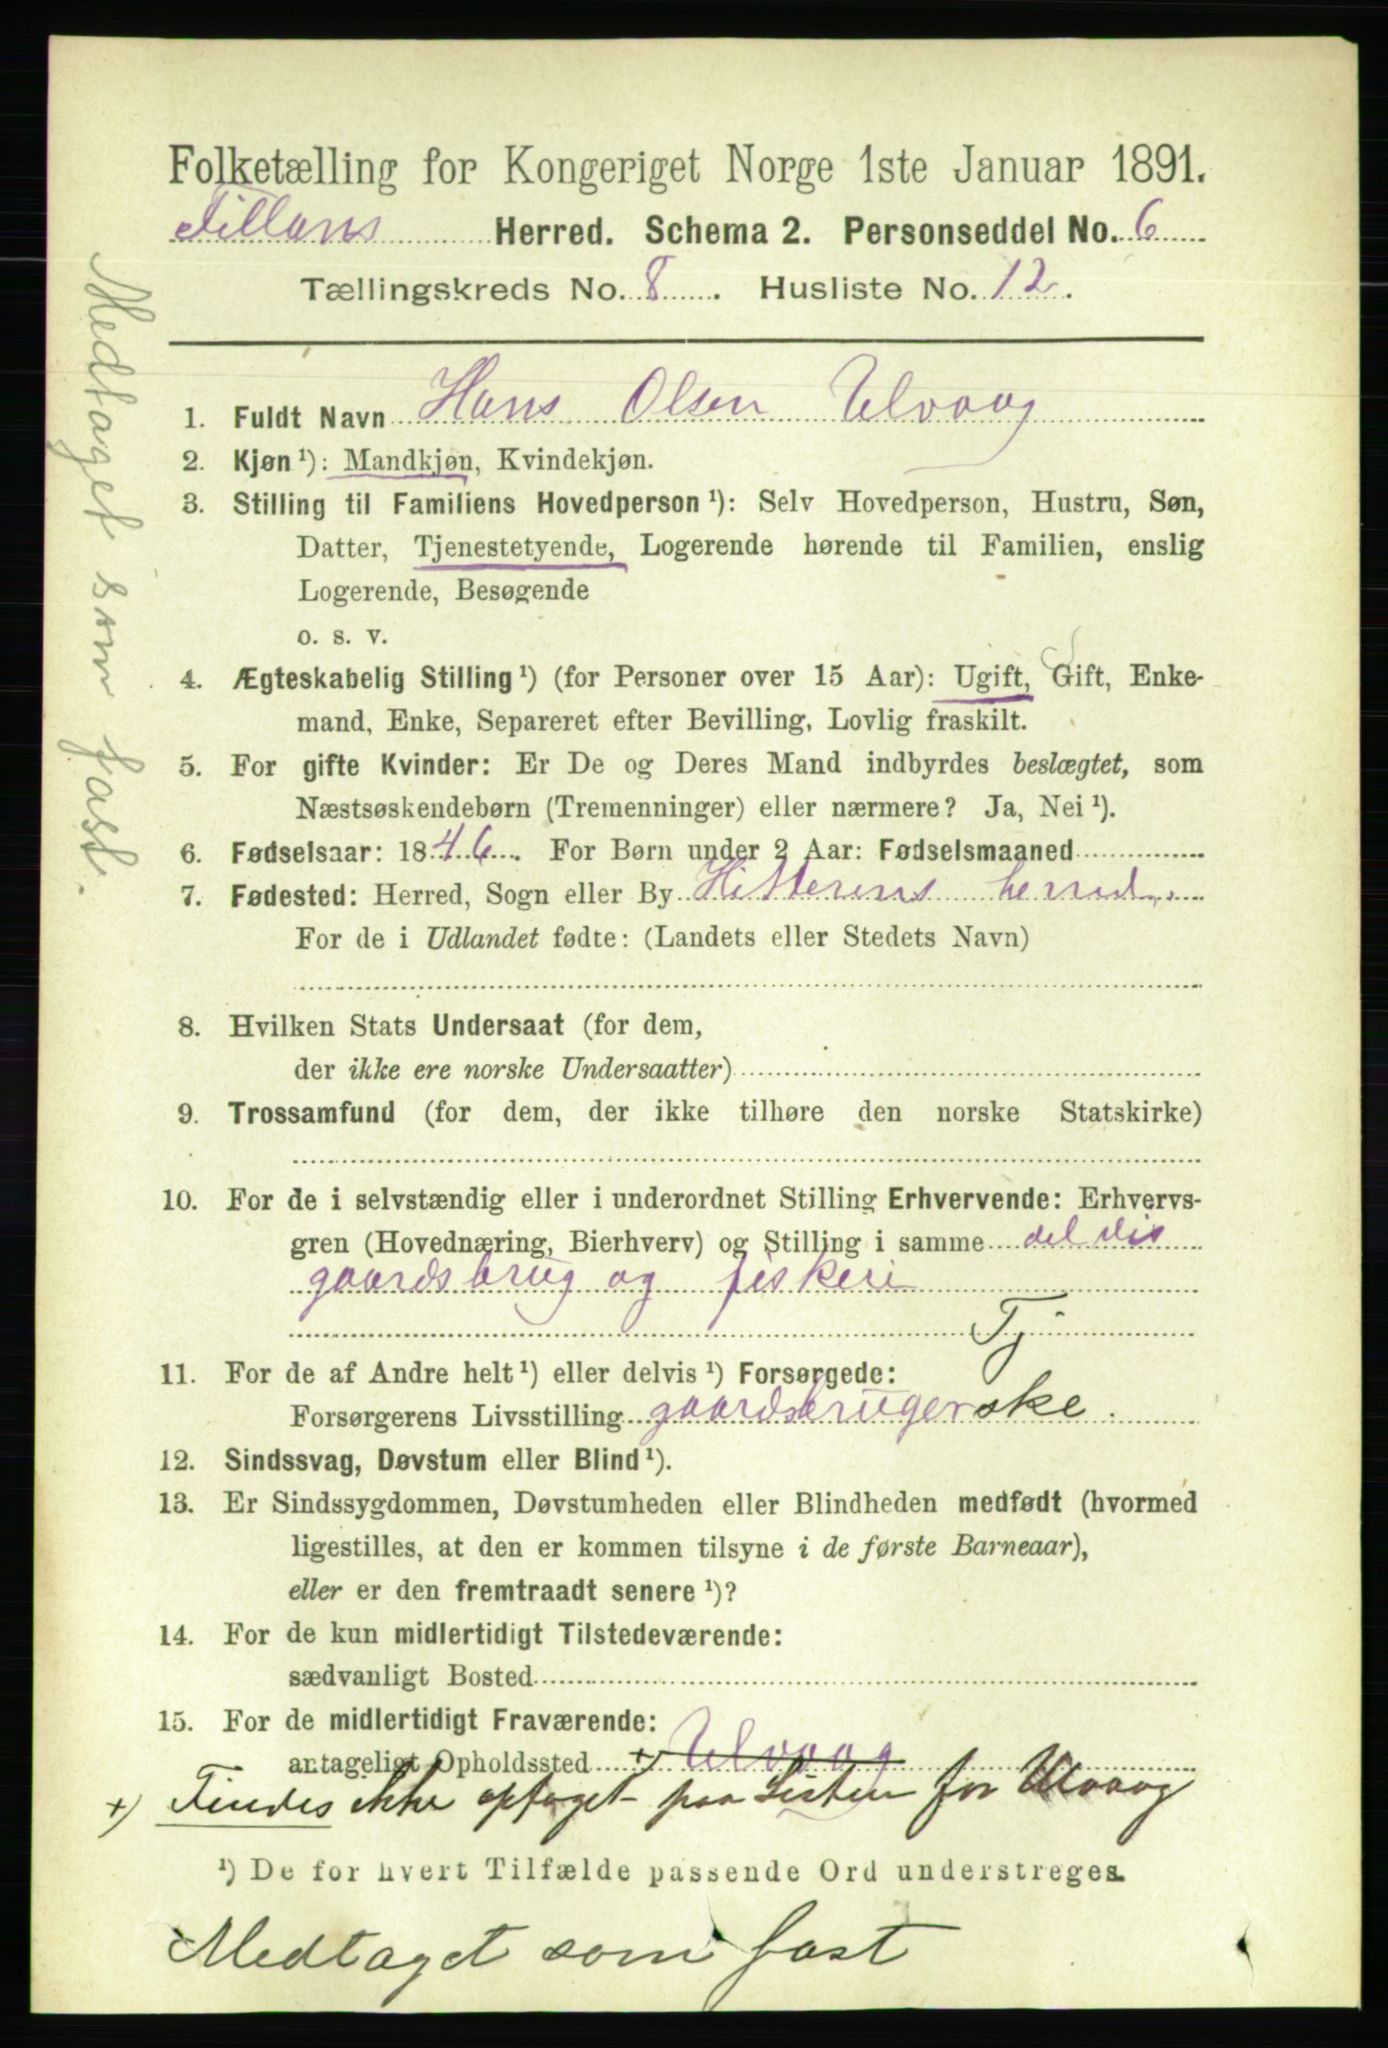 Folketælling for Kongeriget Norge 1ste Januar 1891.
Fillans Herred. Schema 2. Personseddel No. 6
Tællingskreds No. 8. Husliste No. 12.
1. Fuldt Navn Hans Olsen Ulvaag
2. Kjøn ¹): Mandkjøn, Kvindekjøn.
3. Stilling til Familiens Hovedperson ¹): Selv Hovedperson, Hustru, Søn,
Datter, Tjenestetyende, Logerende hørende til Familien, enslig
Logerende, Besøgende
o. s. v.
4. Ægteskabelig Stilling ¹) (for Personer over 15 Aar): Ugift, Gift, Enke-
mand, Enke, Separeret efter Bevilling, Lovlig fraskilt.
5. For gifte Kvinder: Er De og Deres Mand indbyrdes beslægtet, som
Næstsøskendebørn (Tremenninger) eller nærmere? Ja, Nei ¹).
6. Fødselsaar: 1846. For Børn under 2 Aar: Fødselsmaaned
7. Fødested: Herred, Sogn eller By Hitterens herred
For de i Udlandet fødte: (Landets eller Stedets Navn)
8. Hvilken Stats Undersaat (for dem,
der ikke ere norske Undersaatter)
9. Trossamfund (for dem, der ikke tilhøre den norske Statskirke)
10. For de i selvstændig eller i underordnet Stilling Erhvervende: Erhvervs-
gren (Hovednæring, Bierhverv) og Stilling i samme del vis
gaardsbrug og fiskeri
Tj
11. For de af Andre helt ¹) eller delvis ¹) Forsørgede:
Forsørgerens Livsstilling gaardsbrugerske.
12. Sindssvag, Døvstum eller Blind ¹).
13. Er Sindssygdommen, Døvstumheden eller Blindheden medfødt (hvormed
ligestilles, at den er kommen tilsyne i de første Barneaar),
eller er den fremtraadt senere ¹)?
14. For de kun midlertidigt Tilstedeværende:
sædvanligt Bosted
15. For de midlertidigt Fraværende:
antageligt Opholdssted +) Ulvaag
+) Findes ikke optaget paa Listen for Ulvaag
¹) De for hvert Tilfælde passende Ord understreges.
Medtaget som fast
Medtaget som fast.